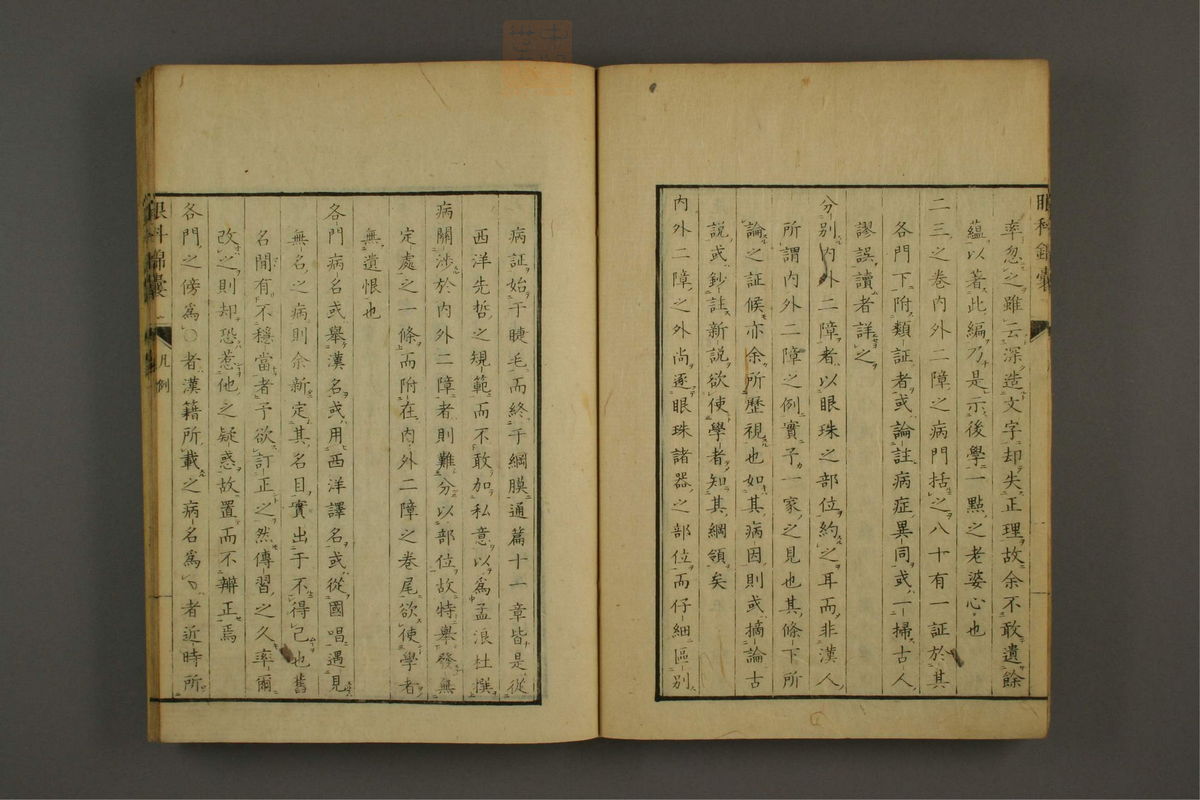 眼科錦囊
率忽之雖云深造文字却失正理故余不敢遺餘
蘊以著此編乃是示後學一點之老婆心也
二三之卷内外二障之病門括之八十有一証於其
各門下附類証者或論註病症異同或一掃古人
謬誤讀者詳之
分別内外二障者以眼珠之部位約之耳而非漢人
所謂内外二障之例實予一家之見也其條下所
論之証候亦余所歷視也如其病因則或摘論古
說或鈔註新說欲使學者知其綱領矣
内外二障之外尚逐眼珠諸器之部位而仔細區別
病証始于睫毛而終于網膜通篇十一章皆是從
西洋先哲之規範而不敢加私意以為孟浪杜撰
病關涉於内外二障者則難分以部位故特舉發無
定處之一條而附在内外二障之卷尾欲使學者
無遺恨也
各門病名或舉漢名或用西洋譯名或從國唱遇見
無名之病則余新定其名目實出于不得已也舊
名間有不穩當者予欲訂正之然傳習之久率爾
改之則却恐惹他之疑惑故置而不辨正焉
各門之傍為〇者漢籍所載之病名為乀者近時所
眼科錦囊
凡例